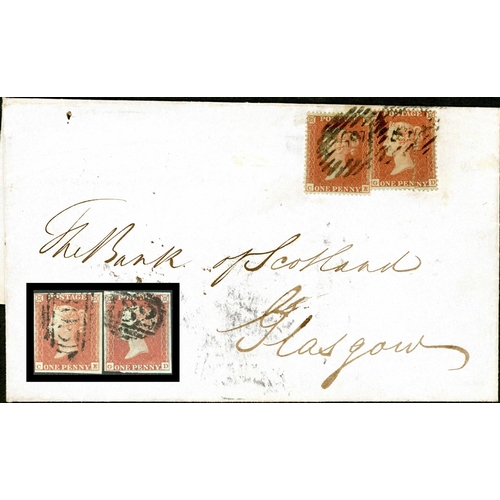 POSTAGE
ONE PENNY
ONE PENNY
The Bank of Scotland
Glasgow
POSTAGE
ONE PENNY
ONE PENNY